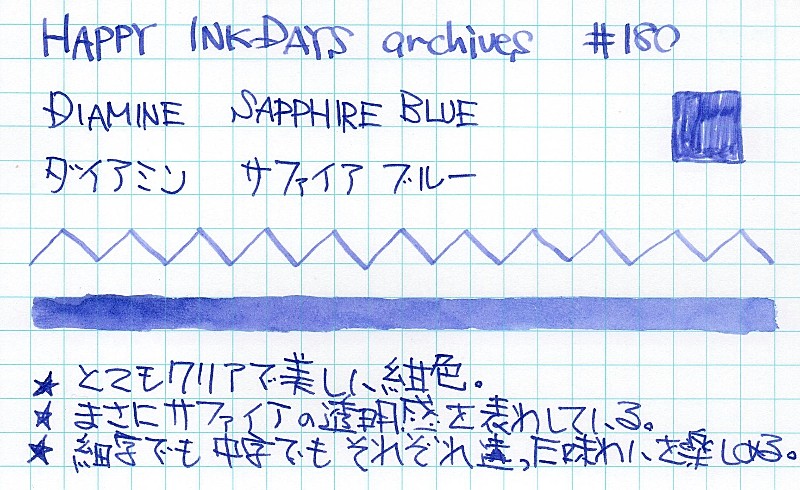 HAPPY INK-DAYS archives #180
DIAMINE SAPPHIRE BLUE
ダイアミン サファイア ブルー
★ とてもクリアで美しい紺色。
★ まさにサファイアの透明感を表わしている。
★ 細字でも中字でもそれぞれ違った味わいを楽しめる。